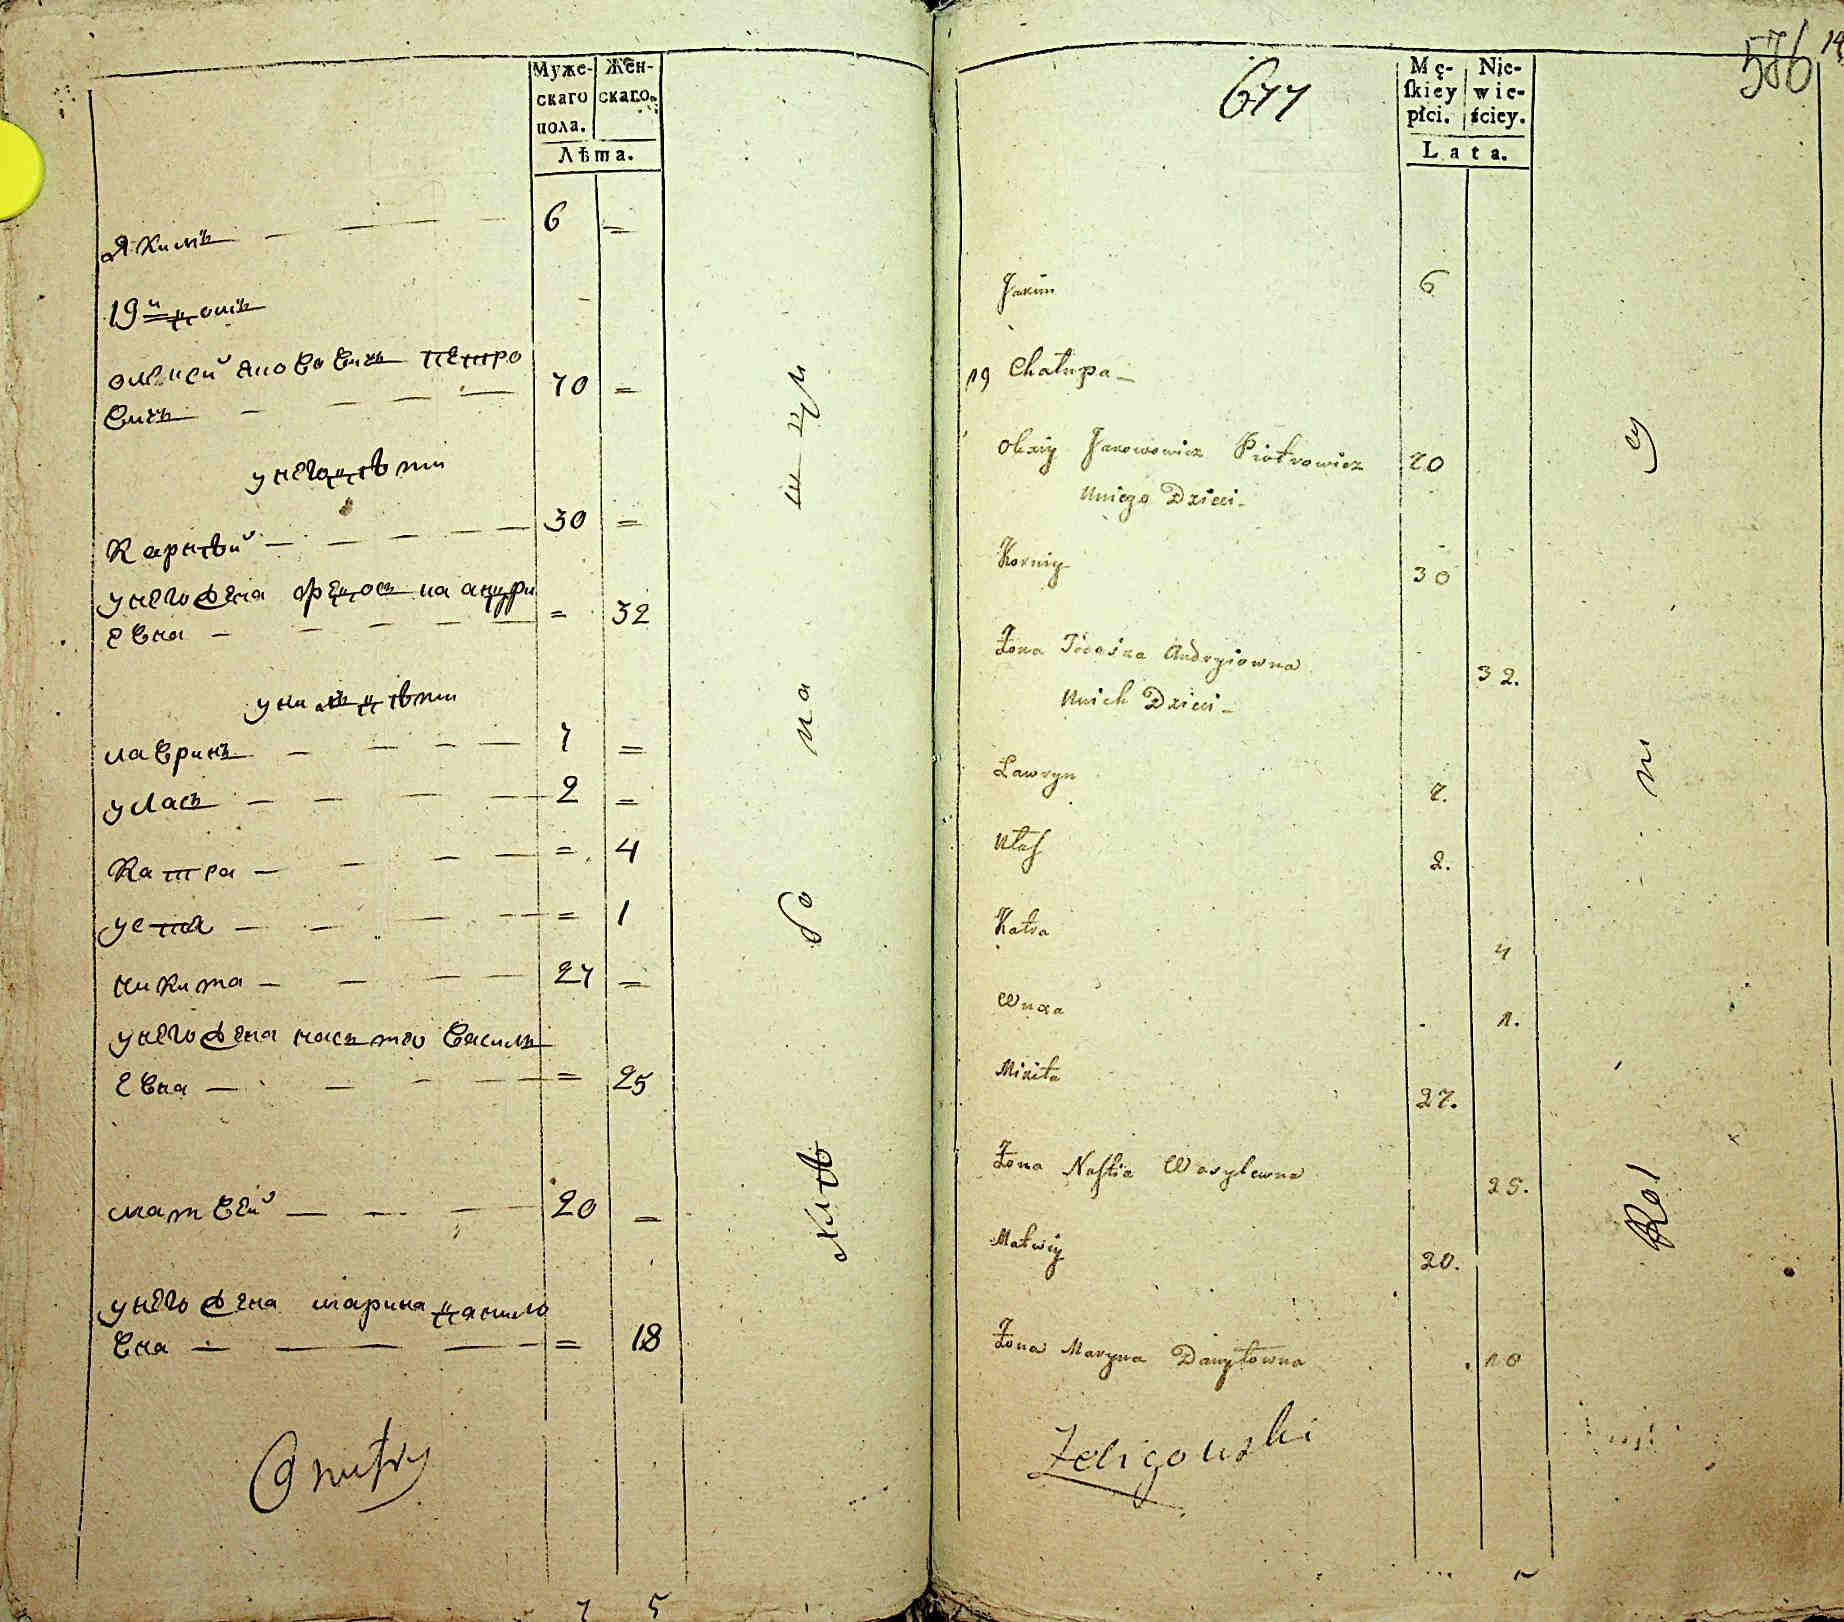 Муже- Жен-
скаго скаго
пола.
Лѣта.
Якимъ — — — 6 =
19й домъ
Олексей Яковович Петро
вичъ — — — — 70 =
у него дѣти
Карнѣй — — — — 30 =
у него жена Федоська Андри
евна — — — — = 32
у нихъ дѣти
Лавринъ — — — — 7 =
Уласъ — — — — 2 =
Катра — — — — = 4
Устя — — — — = 1
Никита — — — — 27 =
у него жена Настя Василь
евна — — — — = 25
Матвей — — — — 20 =
у него жена Марина Данило
вна — — — — = 18
7 5
677
576
14
Mę- Nie-
ſkiey wie-
płci. ściey.
Lata.
Jakim 6
19 Chałupa —
Olexiy Jakowowicz Piotrowicz 70
Uniego Dzieci —
Korniy 30
Żona Fedośka Andryiowna 32.
Unich Dzieci —
Ławryn 7.
Ułaſ 2.
Katra 4
1.
Mikita 27.
Żona Naſtia Wasylewna 25.
Matwiy 20.
Żona Maryna Danyłowna 18
Żeligowski